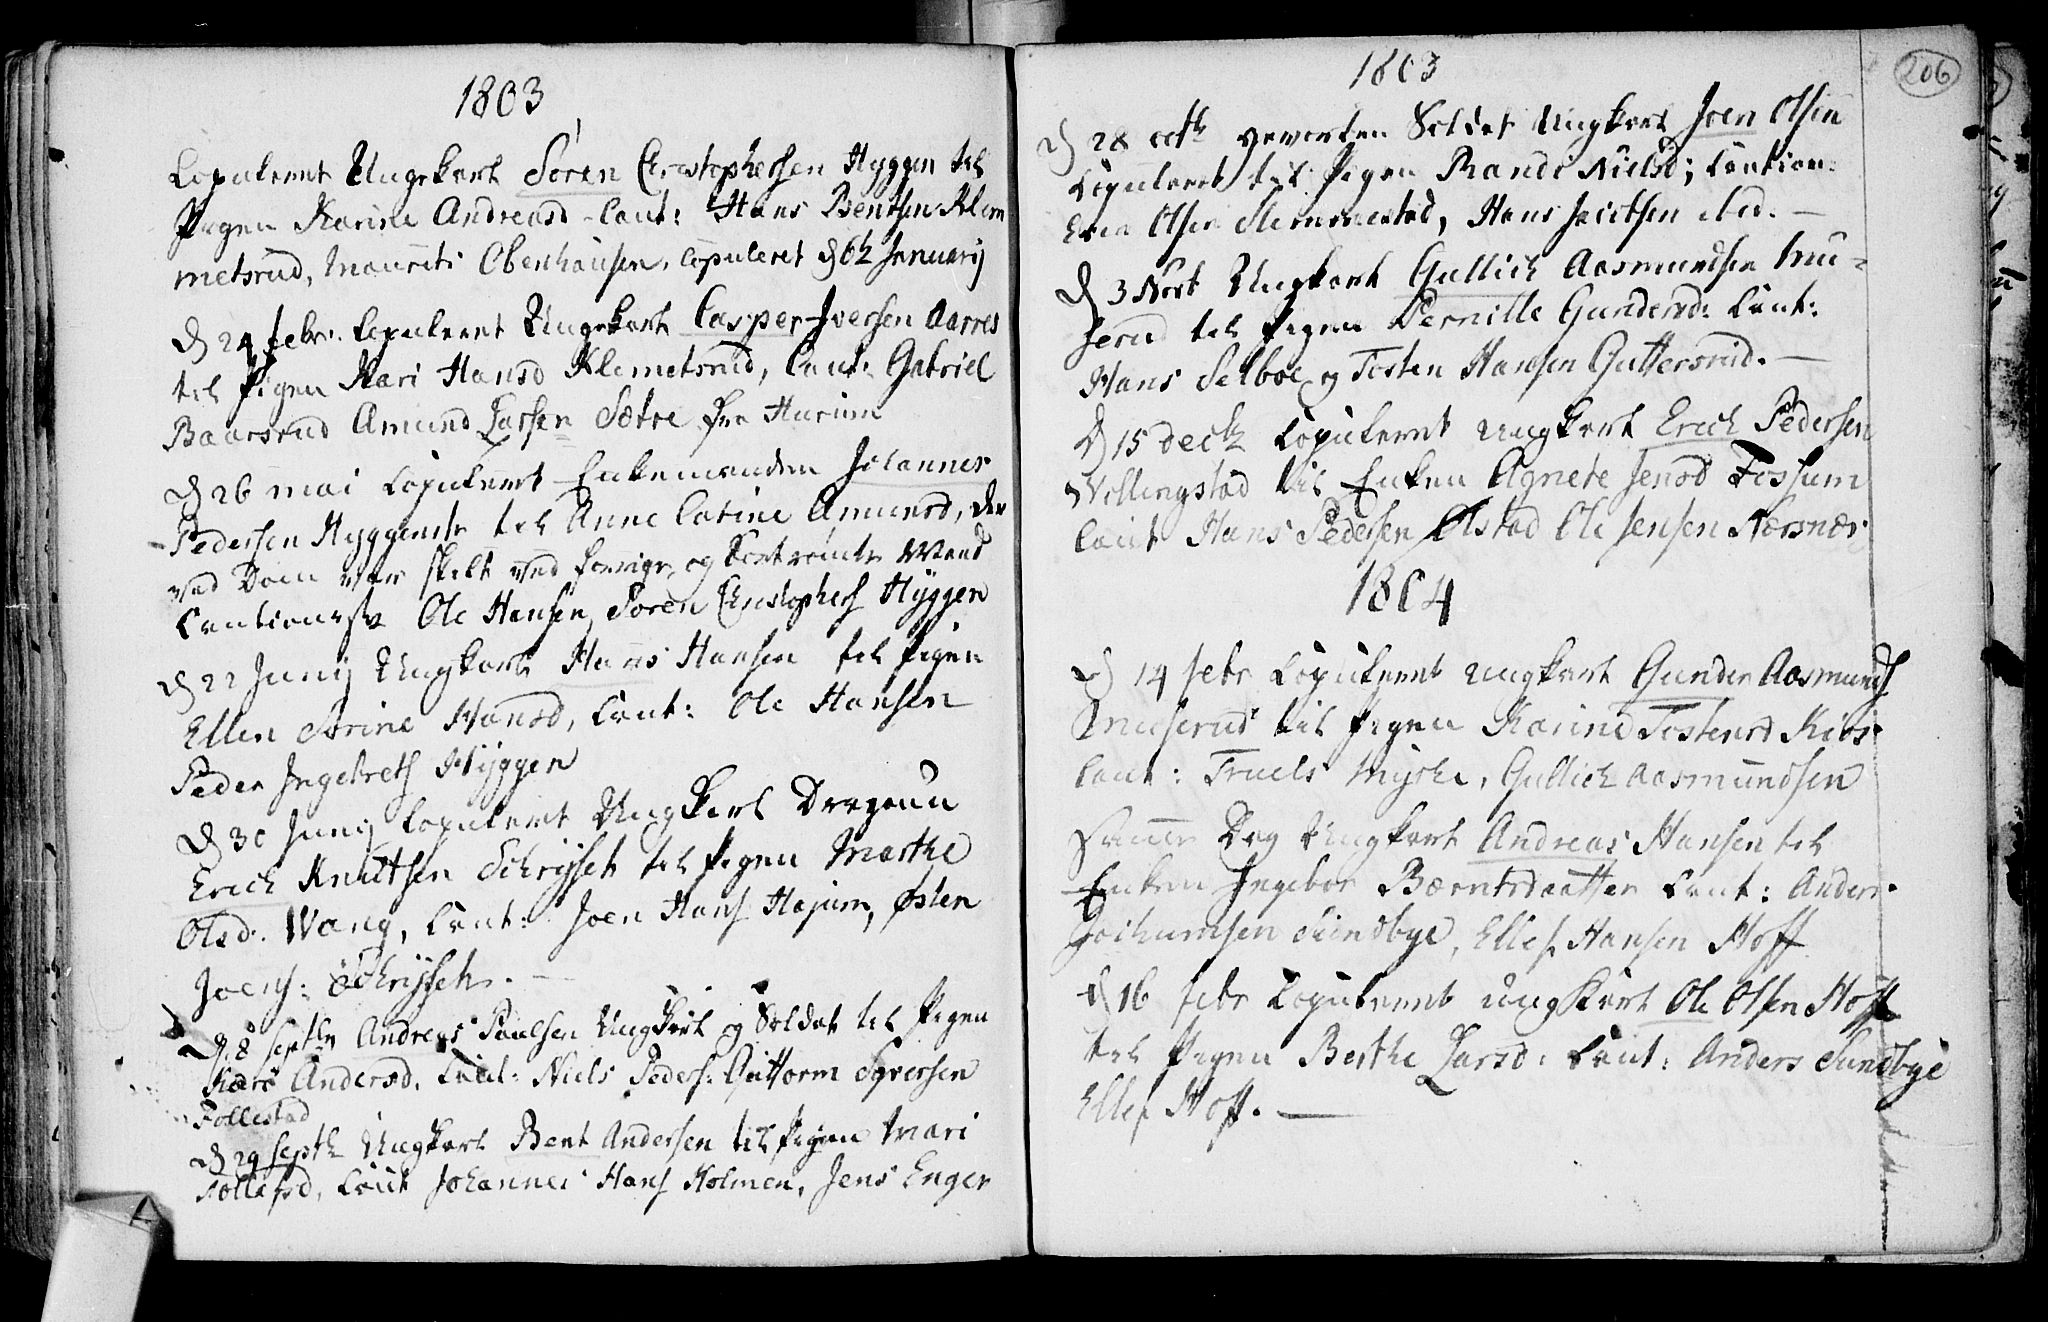 1803
Copuleret Ungekarl Sören Christophersen Hyggen til
Pigen Karine Andreasd Caut: Hans Bentsen Klem
metsrud, Mouritz Obenhausen, copuleret d 6t Januarij
d 24 febr. Copuleret Ungekarl Casper Iversen Aarres
til Pigen Kari Hansd Klemetsrud, Caut: Gabriel
Baarsrud Amund Larsen Sætre fra Hurum
d 26 mai Copuleret Enkemanden Johannes
Pedersen Hyggen til Anne Catine Amunsd, der
ved Dom var skilt ved forrige og Mand
Cautionister Ole Hansen, Sören Christophers Hyggen
d 22 Junij Ungkarl Hans Hansen til Pigen
Ellen Sorine Hansd, Caut: Ole Hansen
Peder Ingebrets Hyggen
d 30 Junij Copuleret Ungkarl Dragoun
Erich Knutsen Schrysset til Pigen Marthe
Olsd. Wang, Caut: Joen Hans Hajum, Østen
Joens: Schrysset. —
d 8 septbr Andreas Paulsen Ungkarl og Soldat til Pigen
Kari Andersd. Caut: Niels Peders: Guttorm Syversen
Follestad
d 29 septb Ungkarl Bent Andersen til Pigen Mari
Tollefsd, Caut Johannes Hans Holmen, Jens Enger
1803
206
d 28 octb gevorben Soldat Ungkarl Joen Olsen
Copuleret til Pigen Randi Nielsd; Caution:
Even Olsen Slemmestad, Hans Jacobsen ibid. —
d 3 Novb Ungkarl Gullich Aasmundsen Mu-
serud til Pigen Pernille Gundersd: Caut:
Hans Selboe og Tosten Hansen Guttersrud. —
d 15 decb Copuleret Ungkarl Erich Pedersen
Villingstad til Enken Agnete Jensd Fossum
Caut Hans Pedersen Ølstad Ole Jensen Nærsnæs
1804
d 14 febr Copuleret Ungkarl Gunder Aasmunds
Muserud til Pigen Karine Tostensd Kios
Caut: Truels Myhre, Gullich Aasmundsen
Samme Dag Ungkarl Andreas Hansen til
Enken Ingebor Bærntsdaatter Caut: Anders
Jochumsen Sundbye, Ellef Hansen Hoff
d 16 febr Copuleret Ungkarl Ole Olsen Hoff
til Pigen Berthe Larsd: Caut: Anders Sundbye
Ellef Hoff. —